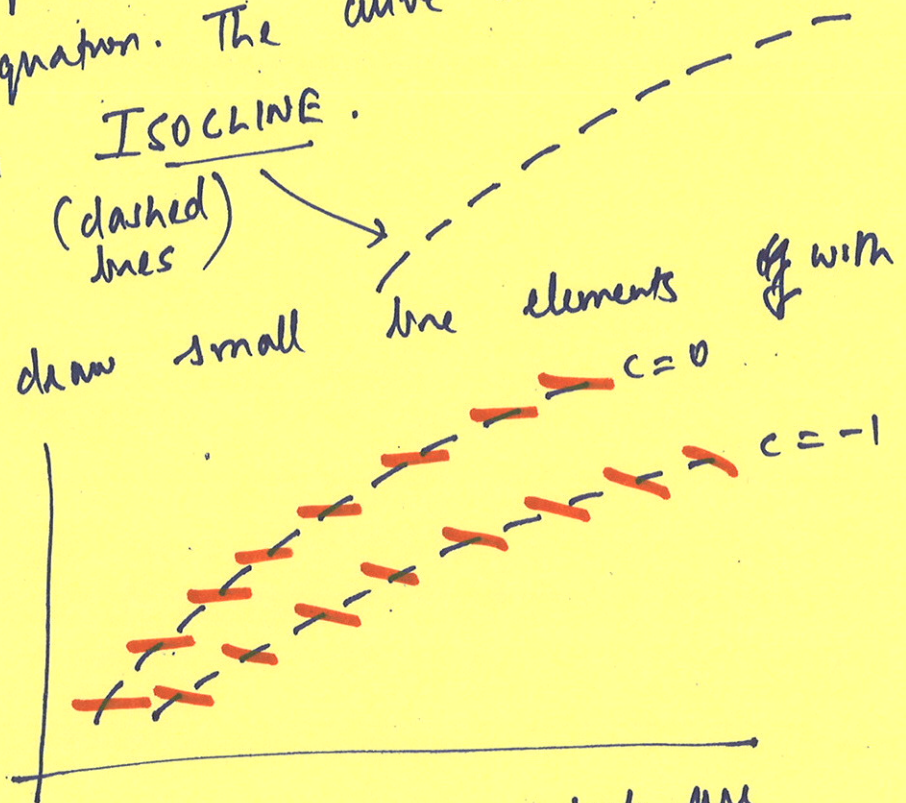 quation. The
ISOCLINE.
(dashed)
lines
draw small line elements of with
c = 0
c = -1